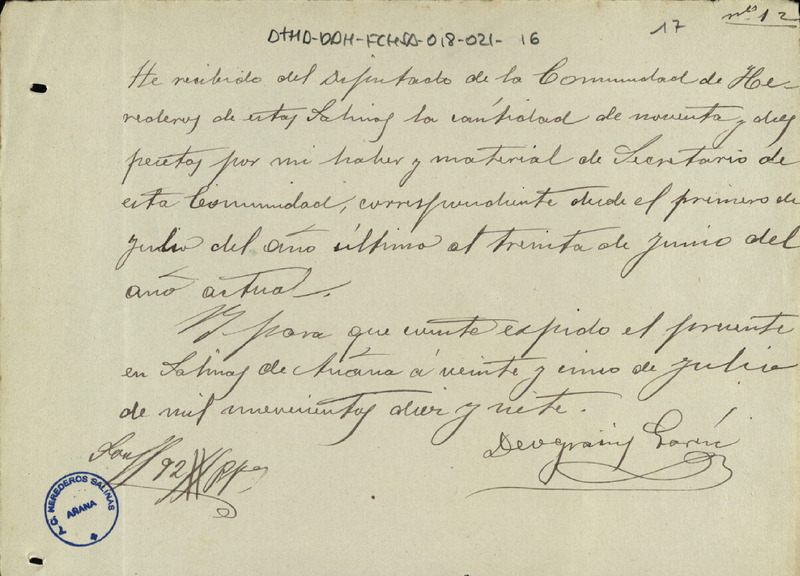 DTHA-DAH-FCHSA-018-021- 16
17
nº 12
He recibido del Diputado de la Comunidad de He-
rederos de estas Salinas la cantidad de noventa y dos
pesetas por mi haber y material de Secretario de
esta Comunidad, correspondiente desde el primero de
Julio del año último al treinta de Junio del
año actual.
Y para que conste expido el presente
en Salinas de Añana á veinte y cinco de Julio
de mil novecientos diez y siete.
Deogracias
Son 92 Pts
A. C. HEREDEROS SALINAS
AÑANA